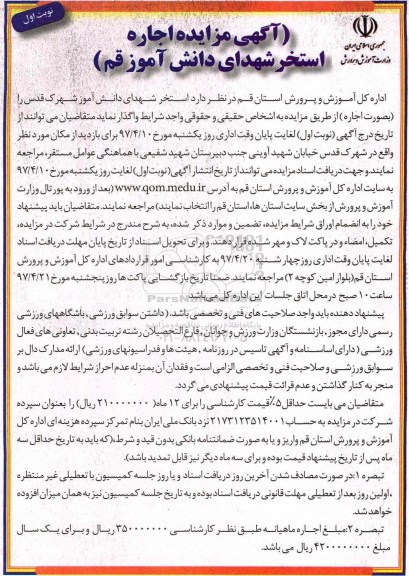 نوبت اول
جمهوری اسلامی ایران
وزارت آموزش و پرورش
(آگهی مزایده اجاره
استخر شهدای دانش آموز قم)
اداره کل آموزش و پرورش استان قم در نظر دارد استخر شهدای دانش آموز شهرک قدس را
(بصورت اجاره) از طریق مزایده به اشخاص حقیقی و حقوقی واجد شرایط واگذار نماید متقاضیان می توانند از
تاریخ درج آگهی (نوبت اول) لغایت پایان وقت اداری روز یکشنبه مورخ ۹۷/۴/۱۰ برای بازدید از مکان مورد نظر
واقع در شهرک قدس خیابان شهید آوینی جنب دبیرستان شهید شفیعی با هماهنگی عوامل مستقر، مراجعه
نمایند و جهت دریافت اسناد مزایده می توانند از تاریخ انتشار آگهی (نوبت اول) لغایت روز یکشنبه مورخ ۹۷/۴/۱۰
به سایت اداره کل آموزش و پرورش استان قم به آدرس www.qom.medu.ir (بعد از ورود به پورتال وزارت
آموزش و پرورش از بخش سایت استان ها، استان قم را انتخاب نمایند) مراجعه نمایند. متقاضیان باید پیشنهاد
خود را به انضمام اوراق شرایط مزایده، تضمین و موارد ذکر شده، به شرح مندرج در شرایط شرکت در مزایده،
تکمیل، امضاء و در پاکت لاک و مهر شده قرار دهند. و برای تحویل اسناد از تاریخ پایان مهلت دریافت اسناد
لغایت پایان وقت اداری روز چهار شنبه ۹۷/۴/۲۰ به کارشناسی امور قراردادهای اداره کل آموزش و پرورش
استان قم (بلوار امین کوچه ۲) مراجعه نمایند. ضمنا تاریخ بازگشایی پاکت ها روز پنجشنبه مورخ ۹۷/۴/۲۱
ساعت ۱۰ صبح در محل اتاق جلسات این اداره کل می باشد.
پیشنهاد دهنده باید واجد صلاحیت های فنی و تخصصی باشد، (داشتن سوابق ورزشی، باشگاههای ورزشی
رسمی دارای مجوز، بازنشستگان وزارت ورزش و جوانان، فارغ التحصیلان رشته تربیت بدنی، تعاونی های فعال
ورزشی (دارای اساسنامه و آگهی تاسیس در روزنامه، هیئت ها و فدراسیونهای ورزشی) ارائه مدارک دال بر
سوابق ورزشی و صلاحیت فنی و تخصصی الزامی است و فقدان آن بمنزله عدم احراز شرایط لازم می باشد و
منجر به کنار گذاشتن و عدم قرائت قیمت پیشنهادی می گردد.
متقاضیان می بایست حداقل ۵٪ قیمت کارشناسی را برای ۱۲ ماه (۲۱۰۰۰۰۰۰۰ ریال) را بعنوان سپرده
شرکت در مزایده به حساب ۲۱۷۳۱۲۳۵۱۴۰۰۱ نزد بانک ملی ایران بنام تمرکز سپرده هزینه ای اداره کل
آموزش و پرورش استان قم واریز و یا به صورت ضمانتنامه بانکی بدون قید و شرط، (که باید به تاریخ حداقل سه
ماه پس از تاریخ پیشنهاد قیمت بوده و برای سه ماه دیگر نیز قابل تمدید باشد).
تبصره ۱: در صورت مصادف شدن آخرین روز دریافت اسناد و یا روز جلسه کمیسیون با تعطیلی غیر منتظره
، اولین روز بعد از تعطیلی مهلت قانونی دریافت اسناد بوده و به تاریخ جلسه کمیسیون نیز به همان میزان افزوده
خواهد شد.
تبصره ۲: مبلغ اجاره ماهیانه طبق نظر کارشناسی ۳۵۰۰۰۰۰۰۰ ریال و برای یک سال
مبلغ ۴۲۰۰۰۰۰۰۰۰ ریال می باشد.